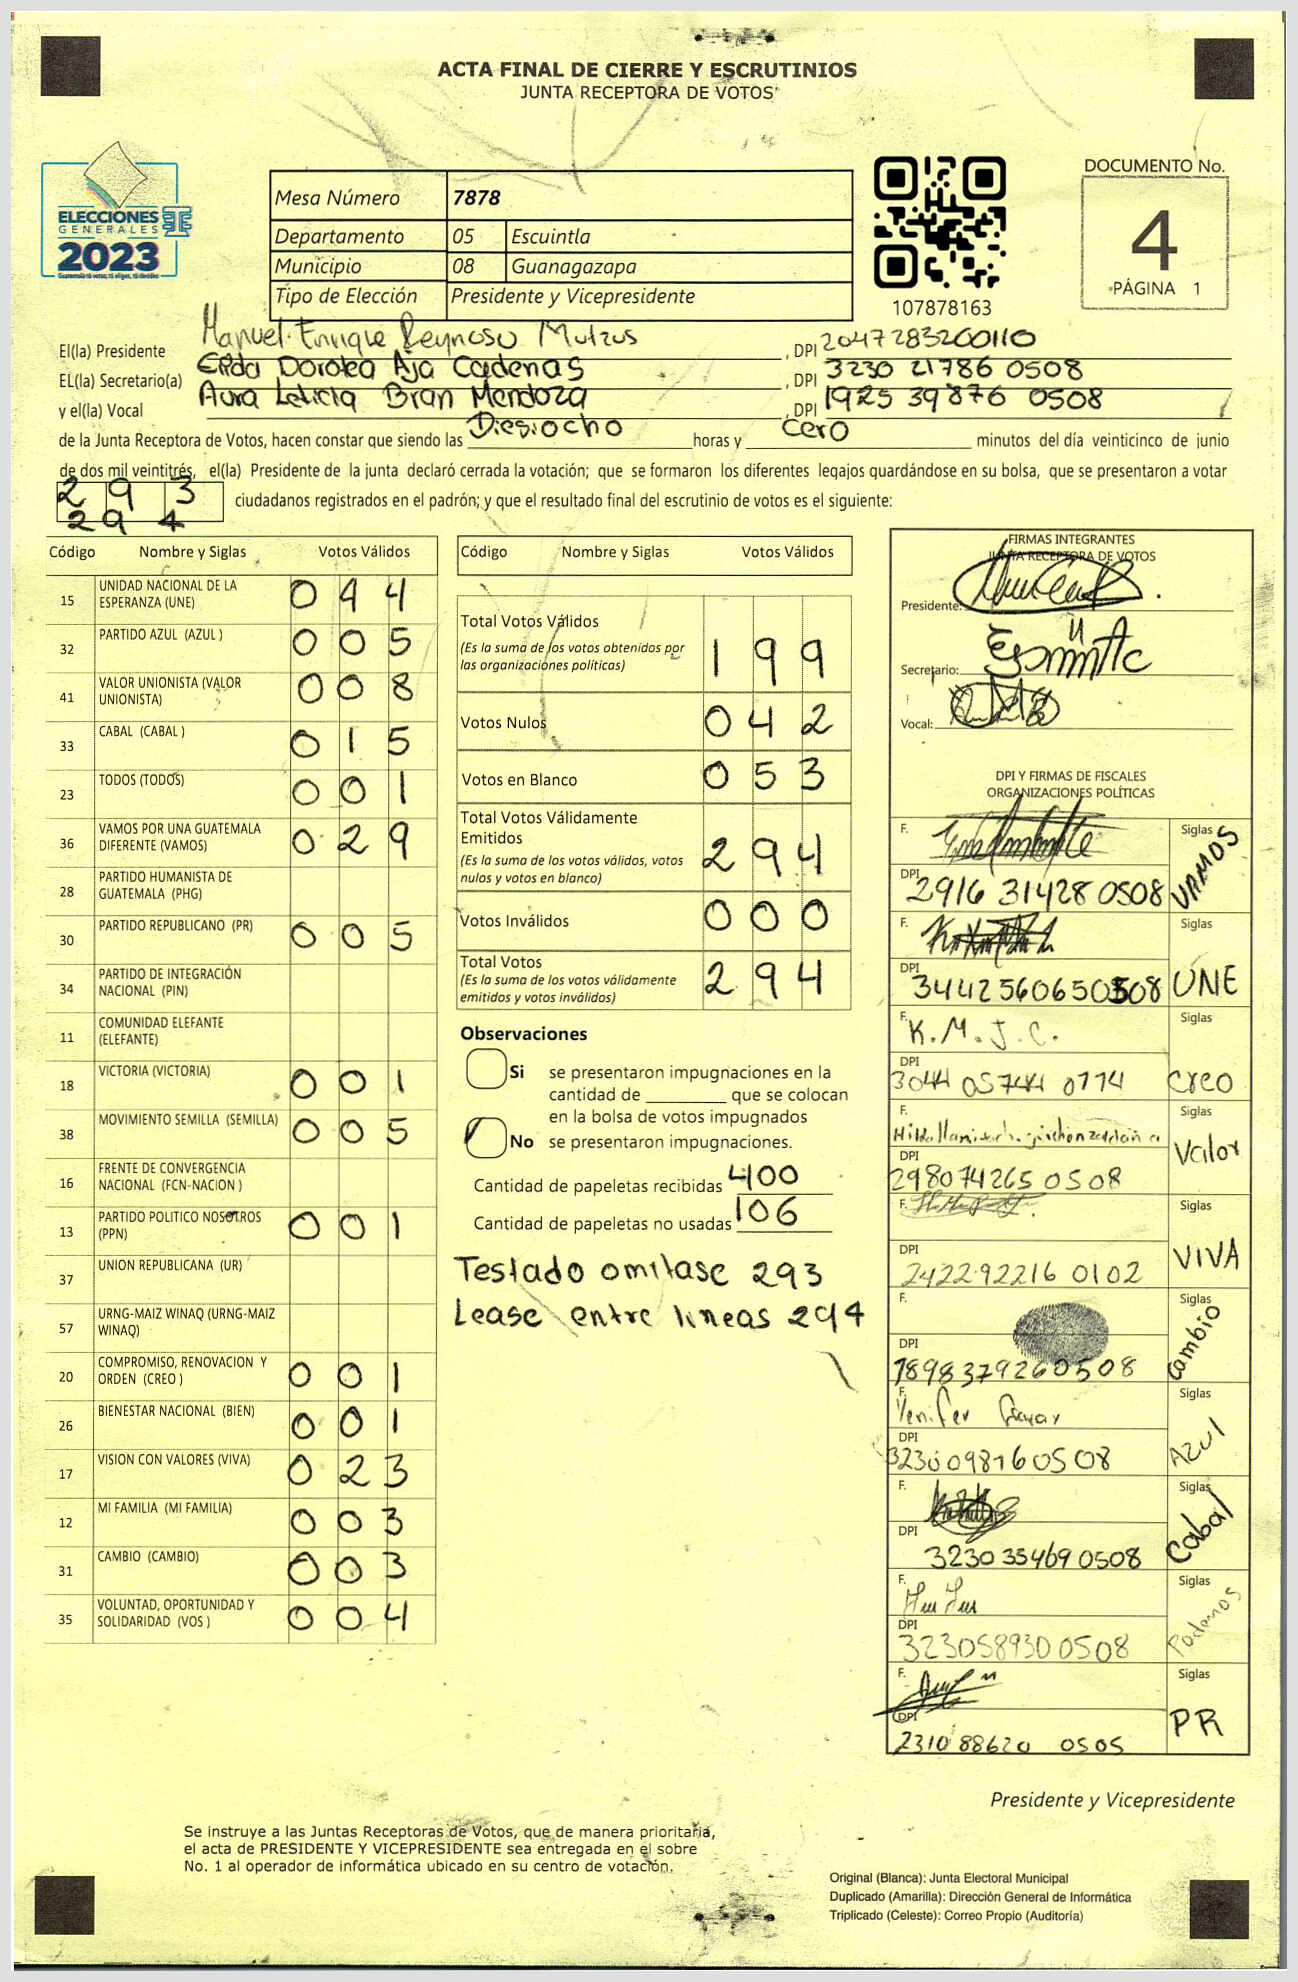 ACTA FINAL DE CIERRE Y ESCRUTINIOS
JUNTA RECEPTORA DE VOTOS
ELECCIONES
GENERALES
2023
Mesa Número 7878
Departamento 05 Escuintla
Municipio 08 Guanagazapa
Tipo de Elección Presidente y Vicepresidente
107878163
DOCUMENTO No.
4
PÁGINA 1
El(la) Presidente Manuel Enrique Reynoso Mutzus , DPI 2047283200110
EL(la) Secretario(a) Elda Dorotea Aja Cadenas , DPI 3230 21786 0508
y el(la) Vocal Aura Leticia Bran Mendoza , DPI 1925 39876 0508
de la Junta Receptora de Votos, hacen constar que siendo las Diesiocho horas y cero minutos del día veinticinco de junio
de dos mil veintitrés, el(la) Presidente de la junta declaró cerrada la votación; que se formaron los diferentes legajos guardándose en su bolsa, que se presentaron a votar
293 ciudadanos registrados en el padrón; y que el resultado final del escrutinio de votos es el siguiente:
294
Código Nombre y Siglas Votos Válidos
15 UNIDAD NACIONAL DE LA ESPERANZA (UNE) 0 9 4
32 PARTIDO AZUL (AZUL ) 0 0 5
41 VALOR UNIONISTA (VALOR UNIONISTA) 0 0 8
33 CABAL (CABAL ) 0 1 5
23 TODOS (TODOS) 0 0 1
36 VAMOS POR UNA GUATEMALA DIFERENTE (VAMOS) 0 2 9
28 PARTIDO HUMANISTA DE GUATEMALA (PHG)
30 PARTIDO REPUBLICANO (PR) 0 0 5
34 PARTIDO DE INTEGRACIÓN NACIONAL (PIN)
11 COMUNIDAD ELEFANTE (ELEFANTE)
18 VICTORIA (VICTORIA) 0 0 1
38 MOVIMIENTO SEMILLA (SEMILLA) 0 0 5
16 FRENTE DE CONVERGENCIA NACIONAL (FCN-NACION )
13 PARTIDO POLITICO NOSOTROS (PPN) 0 0 1
37 UNION REPUBLICANA (UR)
57 URNG-MAIZ WINAQ (URNG-MAIZ WINAQ)
20 COMPROMISO, RENOVACION Y ORDEN (CREO ) 0 0 1
26 BIENESTAR NACIONAL (BIEN) 0 0 1
17 VISION CON VALORES (VIVA) 0 2 3
12 MI FAMILIA (MI FAMILIA) 0 0 3
31 CAMBIO (CAMBIO) 0 0 3
35 VOLUNTAD, OPORTUNIDAD Y SOLIDARIDAD (VOS ) 0 0 4
Código Nombre y Siglas Votos Válidos
Total Votos Válidos 1 9 9
(Es la suma de los votos obtenidos por
las organizaciones políticas)
Votos Nulos 0 4 2
Votos en Blanco 0 5 3
Total Votos Válidamente
Emitidos 2 9 4
(Es la suma de los votos válidos, votos
nulos y votos en blanco)
Votos Inválidos 0 0 0
Total Votos 2 9 4
(Es la suma de los votos válidamente
emitidos y votos inválidos)
Observaciones
Si se presentaron impugnaciones en la
cantidad de ________ que se colocan
en la bolsa de votos impugnados
No se presentaron impugnaciones.
Cantidad de papeletas recibidas 400
Cantidad de papeletas no usadas 106
Testado omitase 293
Lease entre lineas 294
FIRMAS INTEGRANTES
JUNTA RECEPTORA DE VOTOS
Presidente:
Secretario:
Vocal:
DPI Y FIRMAS DE FISCALES
ORGANIZACIONES POLÍTICAS
F. Siglas VAMOS
DPI 2916 31428 0508
F. Siglas UNE
DPI 3442560650508
F. K.M.J.C. Siglas creo
DPI 3044 05744 0774
F. Siglas Valor
DPI 298074265 0508
F. Siglas VIVA
DPI 2422 92216 0102
F. Siglas Cambio
DPI 1898379260508
F. Yenifer Siglas Azul
DPI 3230098160508
F. Siglas Cabal
DPI 3230 35469 0508
F. Siglas Podemos
DPI 323058930 0508
F. Siglas PR
DPI 2310 88620 0505
Presidente y Vicepresidente
Se instruye a las Juntas Receptoras de Votos, que de manera prioritaria,
el acta de PRESIDENTE Y VICEPRESIDENTE sea entregada en el sobre
No. 1 al operador de informática ubicado en su centro de votación.
Original (Blanca): Junta Electoral Municipal
Duplicado (Amarilla): Dirección General de Informática
Triplicado (Celeste): Correo Propio (Auditoría)